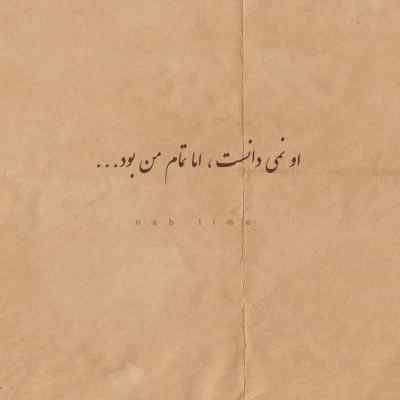 او نمی دانست ، اما تمام من بود...
nab time